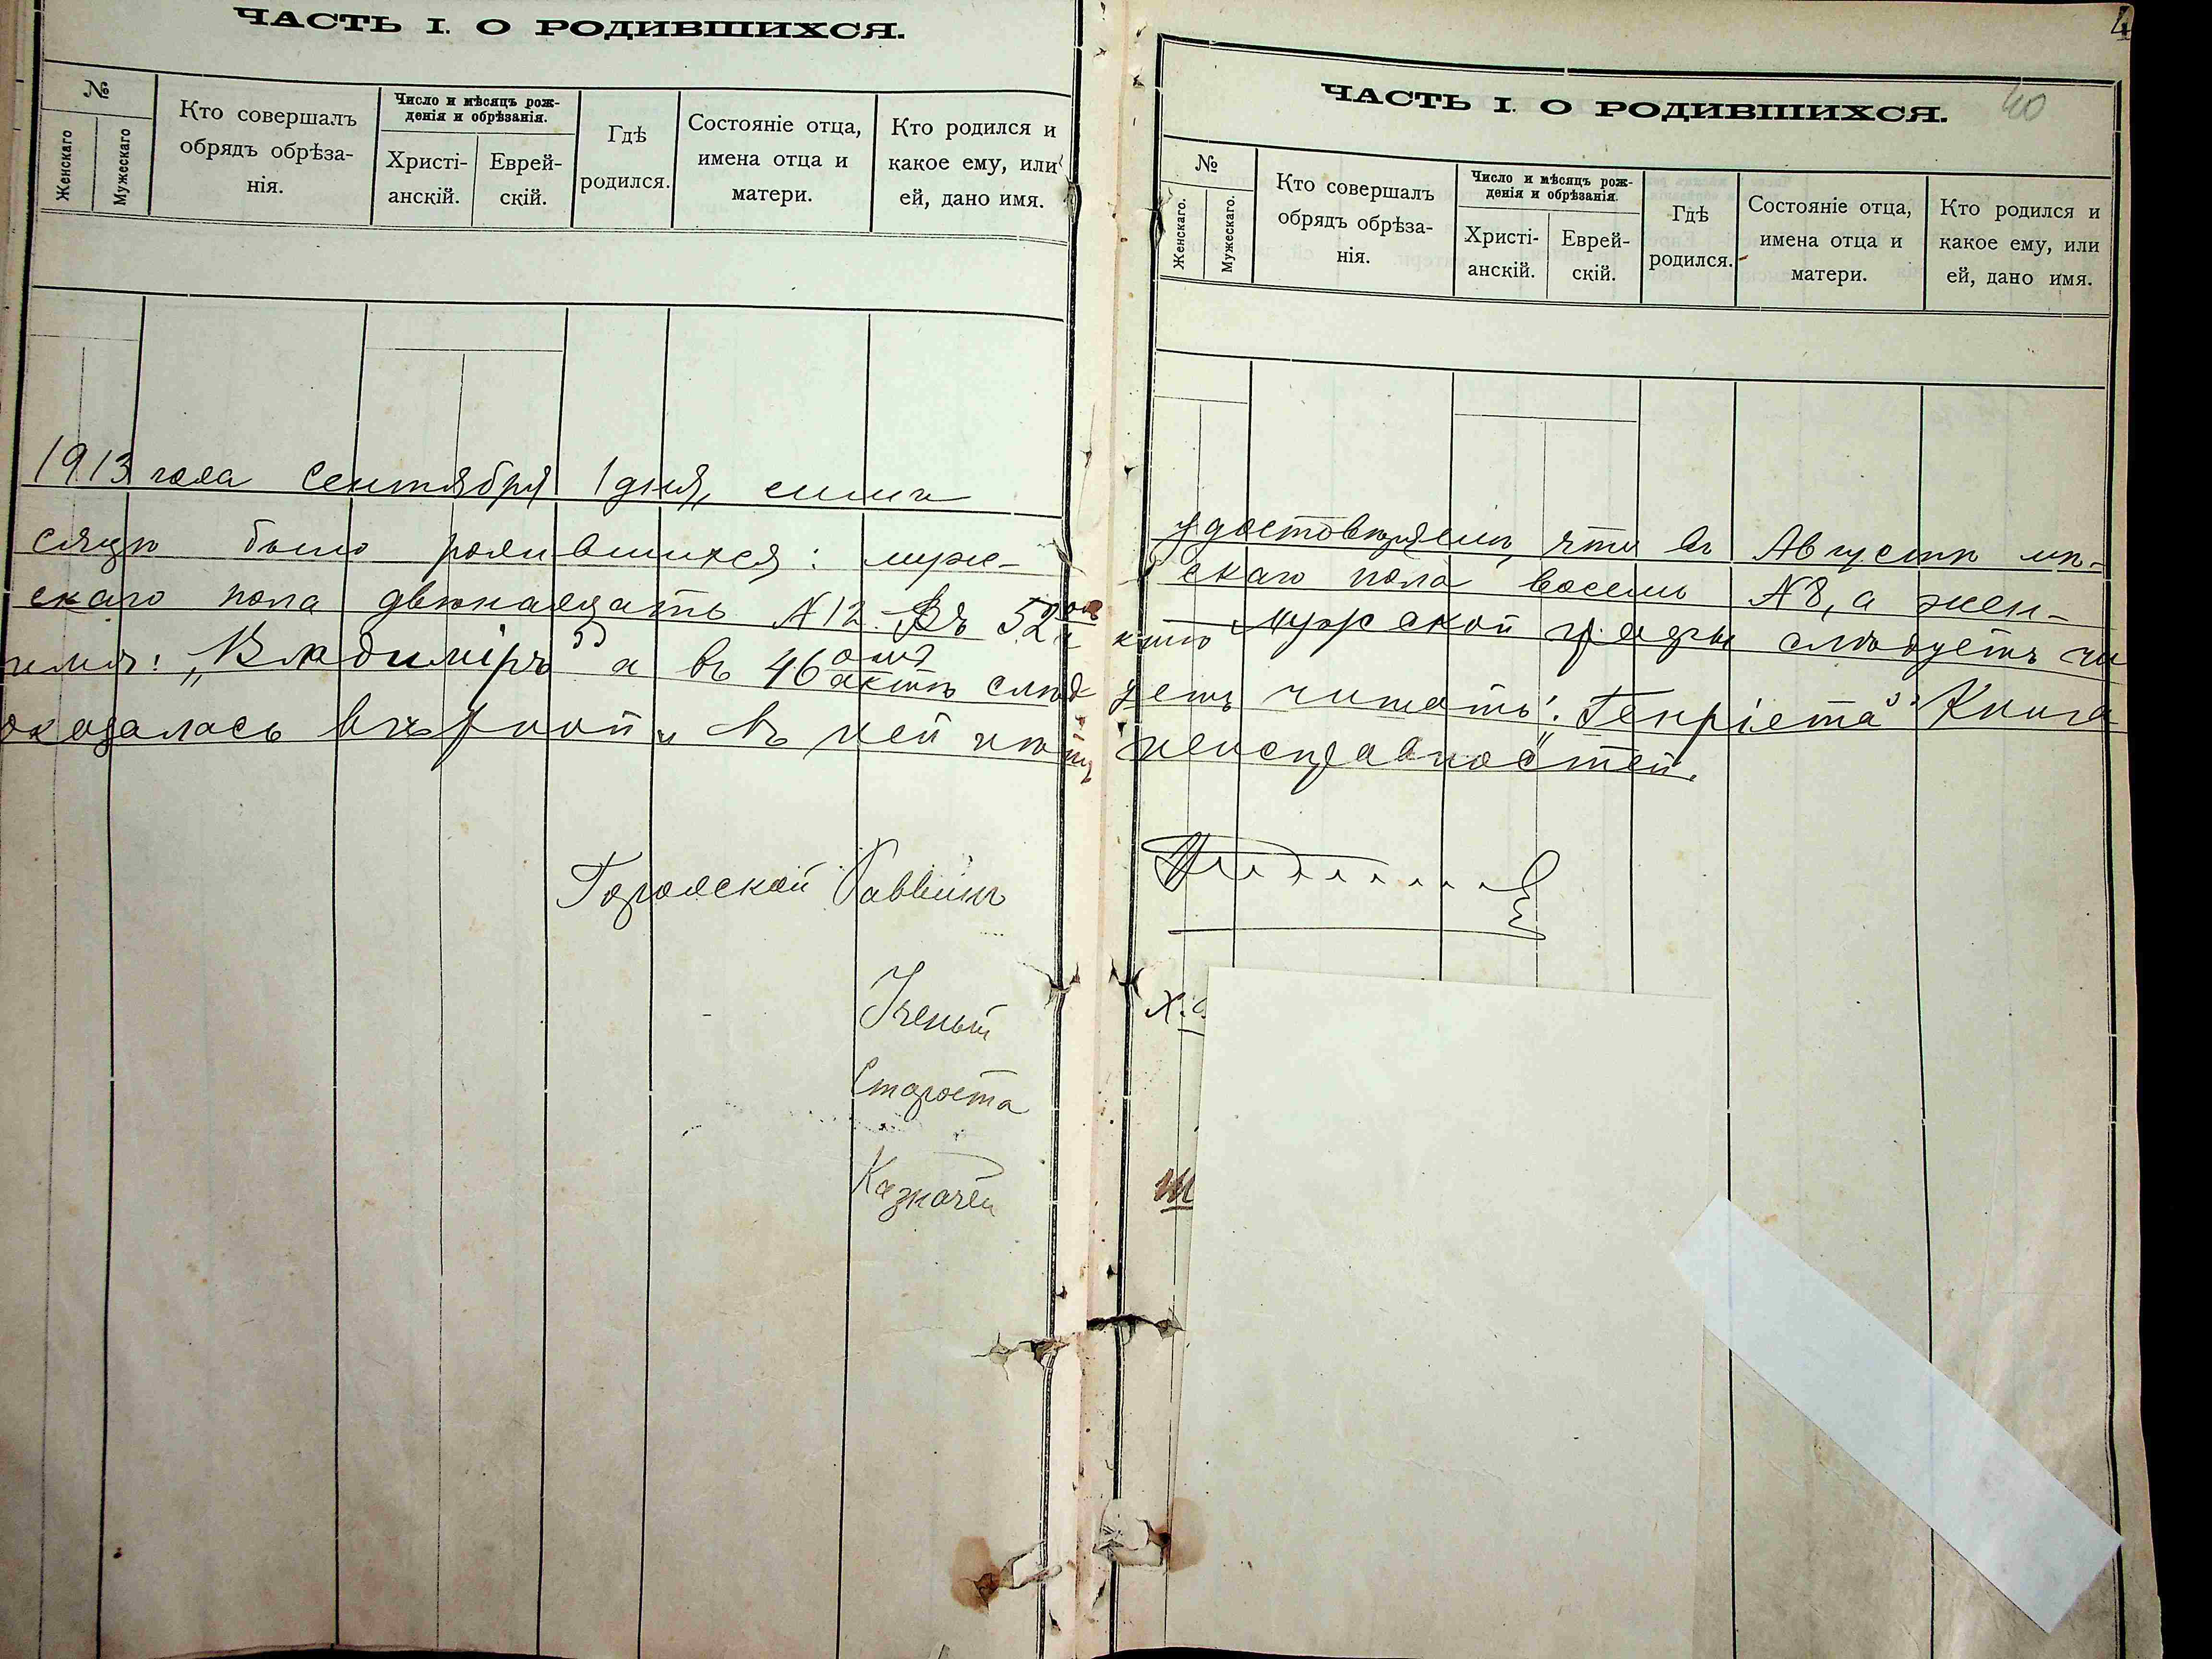 ЧАСТЬ I. О РОДИВШИХСЯ.
№
Женскаго
Мужескаго
Кто совершалъ
обрядъ обрѣза-
нія.
Число и мѣсяцъ рож-
денія и обрѣзанія.
Христі-
анскій.
Еврей-
скій.
Гдѣ
родился.
Состояніе отца,
имена отца и
матери.
Кто родился и
какое ему, или
ей, дано имя.
4
ЧАСТЬ I. О РОДИВШИХСЯ.
40
№
Женскаго.
Мужескаго.
Кто совершалъ
обрядъ обрѣза-
нія.
Число и мѣсяцъ рож-
денія и обрѣзанія.
Христі-
анскій.
Еврей-
скій.
Гдѣ
родился.
Состояніе отца,
имена отца и
матери.
Кто родился и
какое ему, или
ей, дано имя.
1913 года Сентября 1 дня, симъ удостовѣряемъ, что въ Августѣ мѣ-
сяцѣ было родившихся: муже-скаго пола восемь №8, а жен-
скаго пола двѣнадцать №12. Въ 52 графѣ слѣдуетъ чи
имя: „Владиміръ" а въ 46 актѣ слѣд уетъ читать: „Генріета" Книга
оказалась вѣрной и въ ней нѣтъ неисправностей.
Городской Раввинъ
Ученый
Староста
Казначей